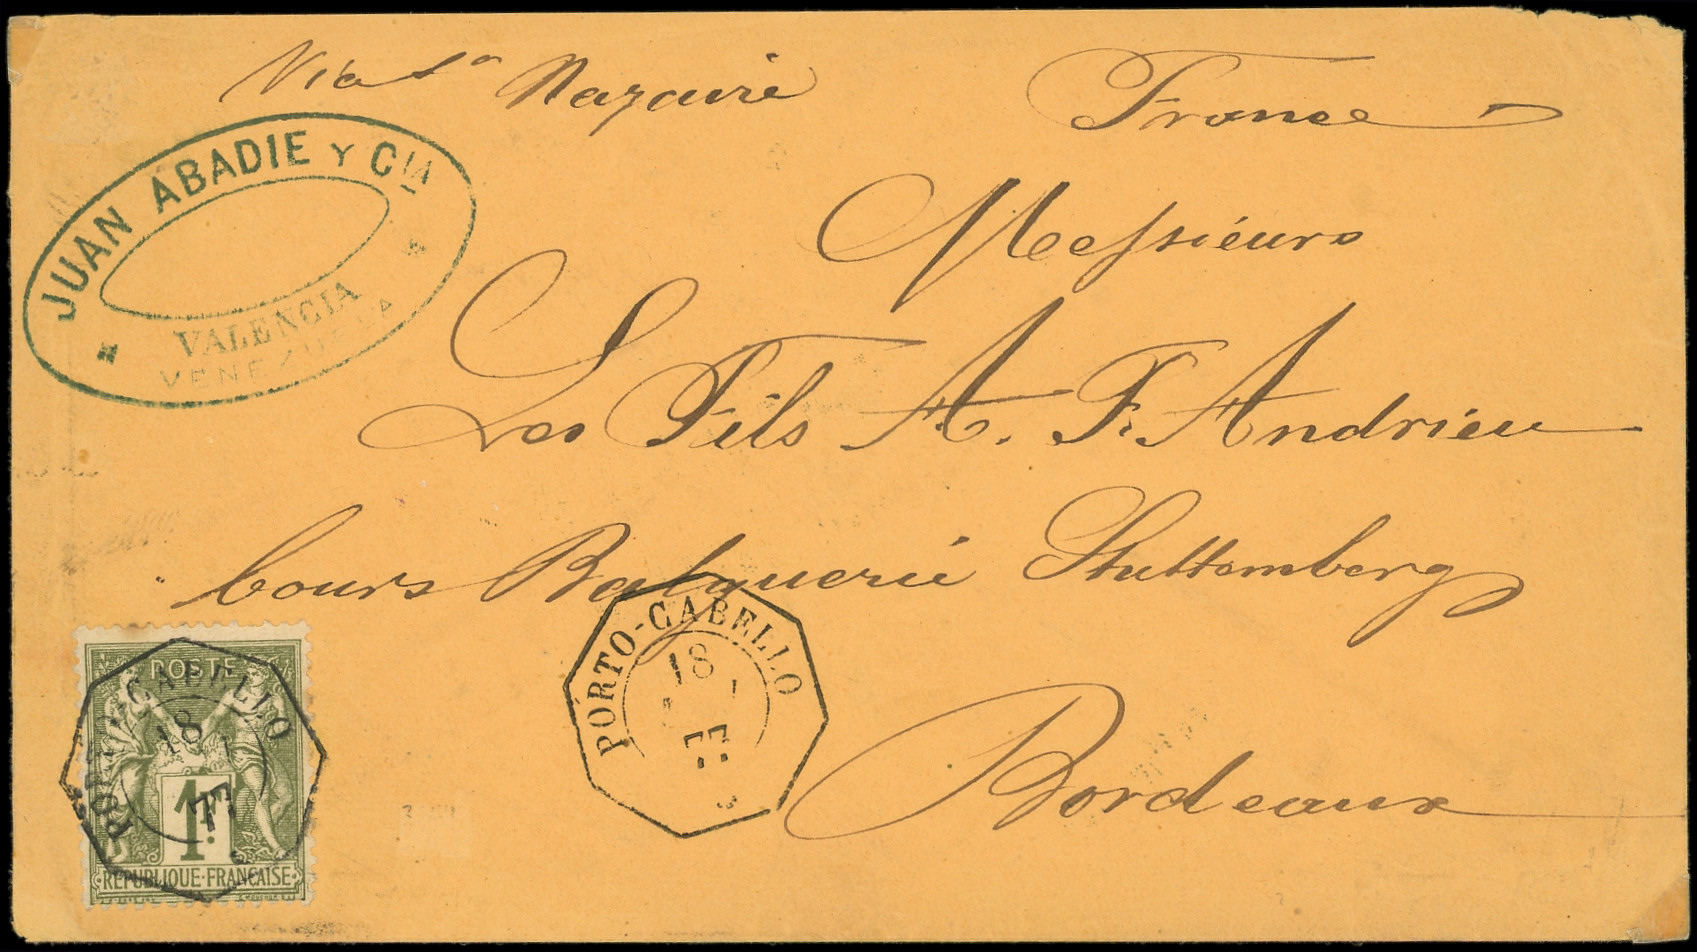 Via St Nazaire
France
JUAN ABADIE Y CIA
VALENCIA
VENEZUELA
Messieurs
Les Fils A. Fs. Andrieu
Cours Balguerie Stuttemberg
Bordeaux
PORTO-CABELLO
18
77
POSTE
1F.
REPUBLIQUE·FRANÇAISE
PORTO-CABELLO
18
77